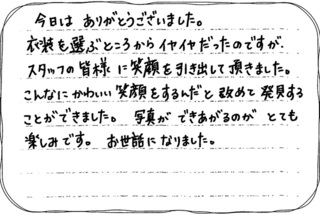 今日は ありがとうございました。
衣装を選ぶところからイヤイヤだったのですが、
スタッフの皆様 に 笑顔 を 引き出して 頂きました。
こんなに かわいい 笑顔をするんだと 改めて 発見する
ことができました。 写真が できあがるのが とても
楽しみです。 お世話に なりました。